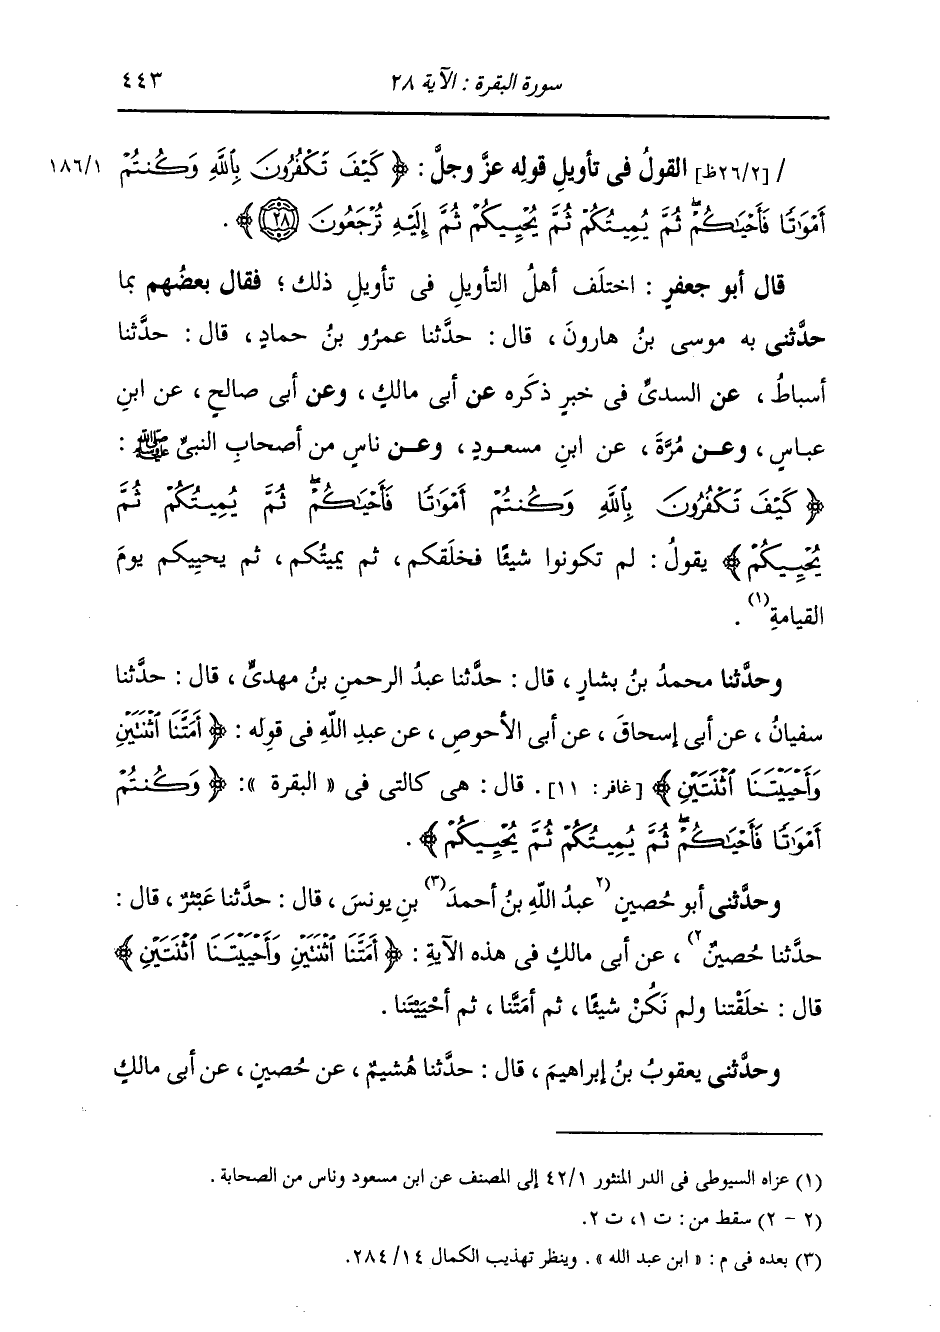 سورة البقرة : الآية ٢٨ ٤٤٣
/ [٢٦/٢ظ] القولُ فى تأويلِ قولِه عزَّ وجلَّ : ﴿ كَيْفَ تَكْفُرُونَ بِاللَّهِ وَكُنتُمْ ١٨٦/١
أَمْوَاتًا فَأَحْيَاكُمْ ۖ ثُمَّ يُمِيتُكُمْ ثُمَّ يُحْيِيكُمْ ثُمَّ إِلَيْهِ تُرْجَعُونَ ٢٨ ﴾ .
قال أبو جعفرٍ : اختلَف أهلُ التأويلِ فى تأويلِ ذلك ؛ فقال بعضُهم بما
حدَّثنى به موسى بنُ هارونَ ، قال : حدَّثنا عمرُو بنُ حمادٍ ، قال : حدَّثنا
أسباطُ ، عن السدىِّ فى خبرٍ ذكَره عن أبى مالكٍ ، وعن أبى صالحٍ ، عن ابنِ
عباسٍ ، وعن مُرَّةَ ، عن ابنِ مسعودٍ ، وعن ناسٍ من أصحابِ النبىِّ ﷺ :
﴿ كَيْفَ تَكْفُرُونَ بِاللَّهِ وَكُنتُمْ أَمْوَاتًا فَأَحْيَاكُمْ ۖ ثُمَّ يُمِيتُكُمْ ثُمَّ
يُحْيِيكُمْ ﴾ يقولُ : لم تكونوا شيئًا فخلَقكم ، ثم يميتُكم ، ثم يحييكم يومَ
القيامةِ(١) .
وحدَّثنا محمدُ بنُ بشارٍ ، قال : حدَّثنا عبدُ الرحمنِ بنُ مهدىٍّ ، قال : حدَّثنا
سفيانُ ، عن أبى إسحاقَ ، عن أبى الأحوصِ ، عن عبدِ اللَّهِ فى قولِه : ﴿ أَمَتَّنَا اثْنَتَيْنِ
وَأَحْيَيْتَنَا اثْنَتَيْنِ ﴾ [غافر: ١١] . قال : هى كالتى فى « البقرة »: ﴿ وَكُنتُمْ
أَمْوَاتًا فَأَحْيَاكُمْ ۖ ثُمَّ يُمِيتُكُمْ ثُمَّ يُحْيِيكُمْ ﴾ .
وحدَّثنى أبو حُصينٍ (٢عبدُ اللَّهِ بنُ أحمدَ(٣) بنِ يونسَ ، قال : حدَّثنا عَبْثَرٌ ، قال :
حدَّثنا حُصينٌ٢) ، عن أبى مالكٍ فى هذه الآيةِ : ﴿ أَمَتَّنَا اثْنَتَيْنِ وَأَحْيَيْتَنَا اثْنَتَيْنِ ﴾
قال : خلَقْتنا ولم نَكُنْ شيئًا ، ثم أمَتَّنا ، ثم أحْيَيْتَنا .
وحدَّثنى يعقوبُ بنُ إبراهيمَ ، قال : حدَّثنا هُشيمٌ ، عن حُصينٍ ، عن أبى مالكٍ
(١) عزاه السيوطى فى الدر المنثور ٤٢/١ إلى المصنف عن ابن مسعود وناس من الصحابة .
(٢ - ٢) سقط من : ت ١، ت ٢.
(٣) بعده فى م : « ابن عبد الله » . وينظر تهذيب الكمال ٢٨٤/١٤.